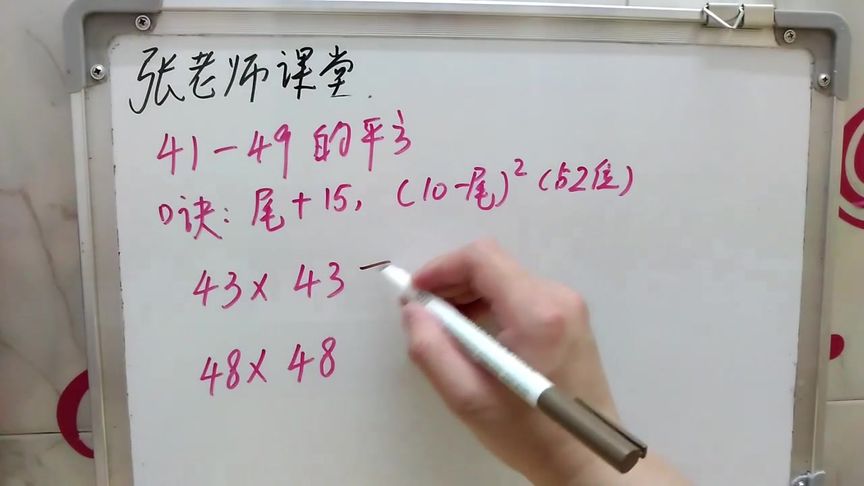 张老师课堂.
41-49的平方
口诀:尾+15,(10-尾)²(占2位)
43×43
48×48